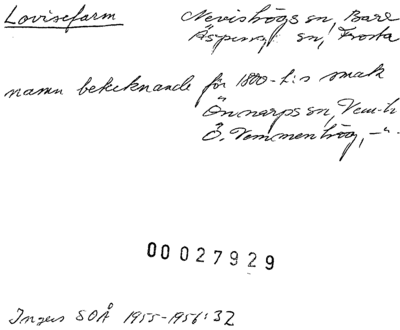 Lovisefarm Nevishögs sn, Bara
Äspinge sn, Frosta
namn betecknande för 1800-t:s smak
Önnarps sn, Vem-h
Ö. Vemmenhög, -"-
00027929
Ingers SOÅ 1955-1956:32